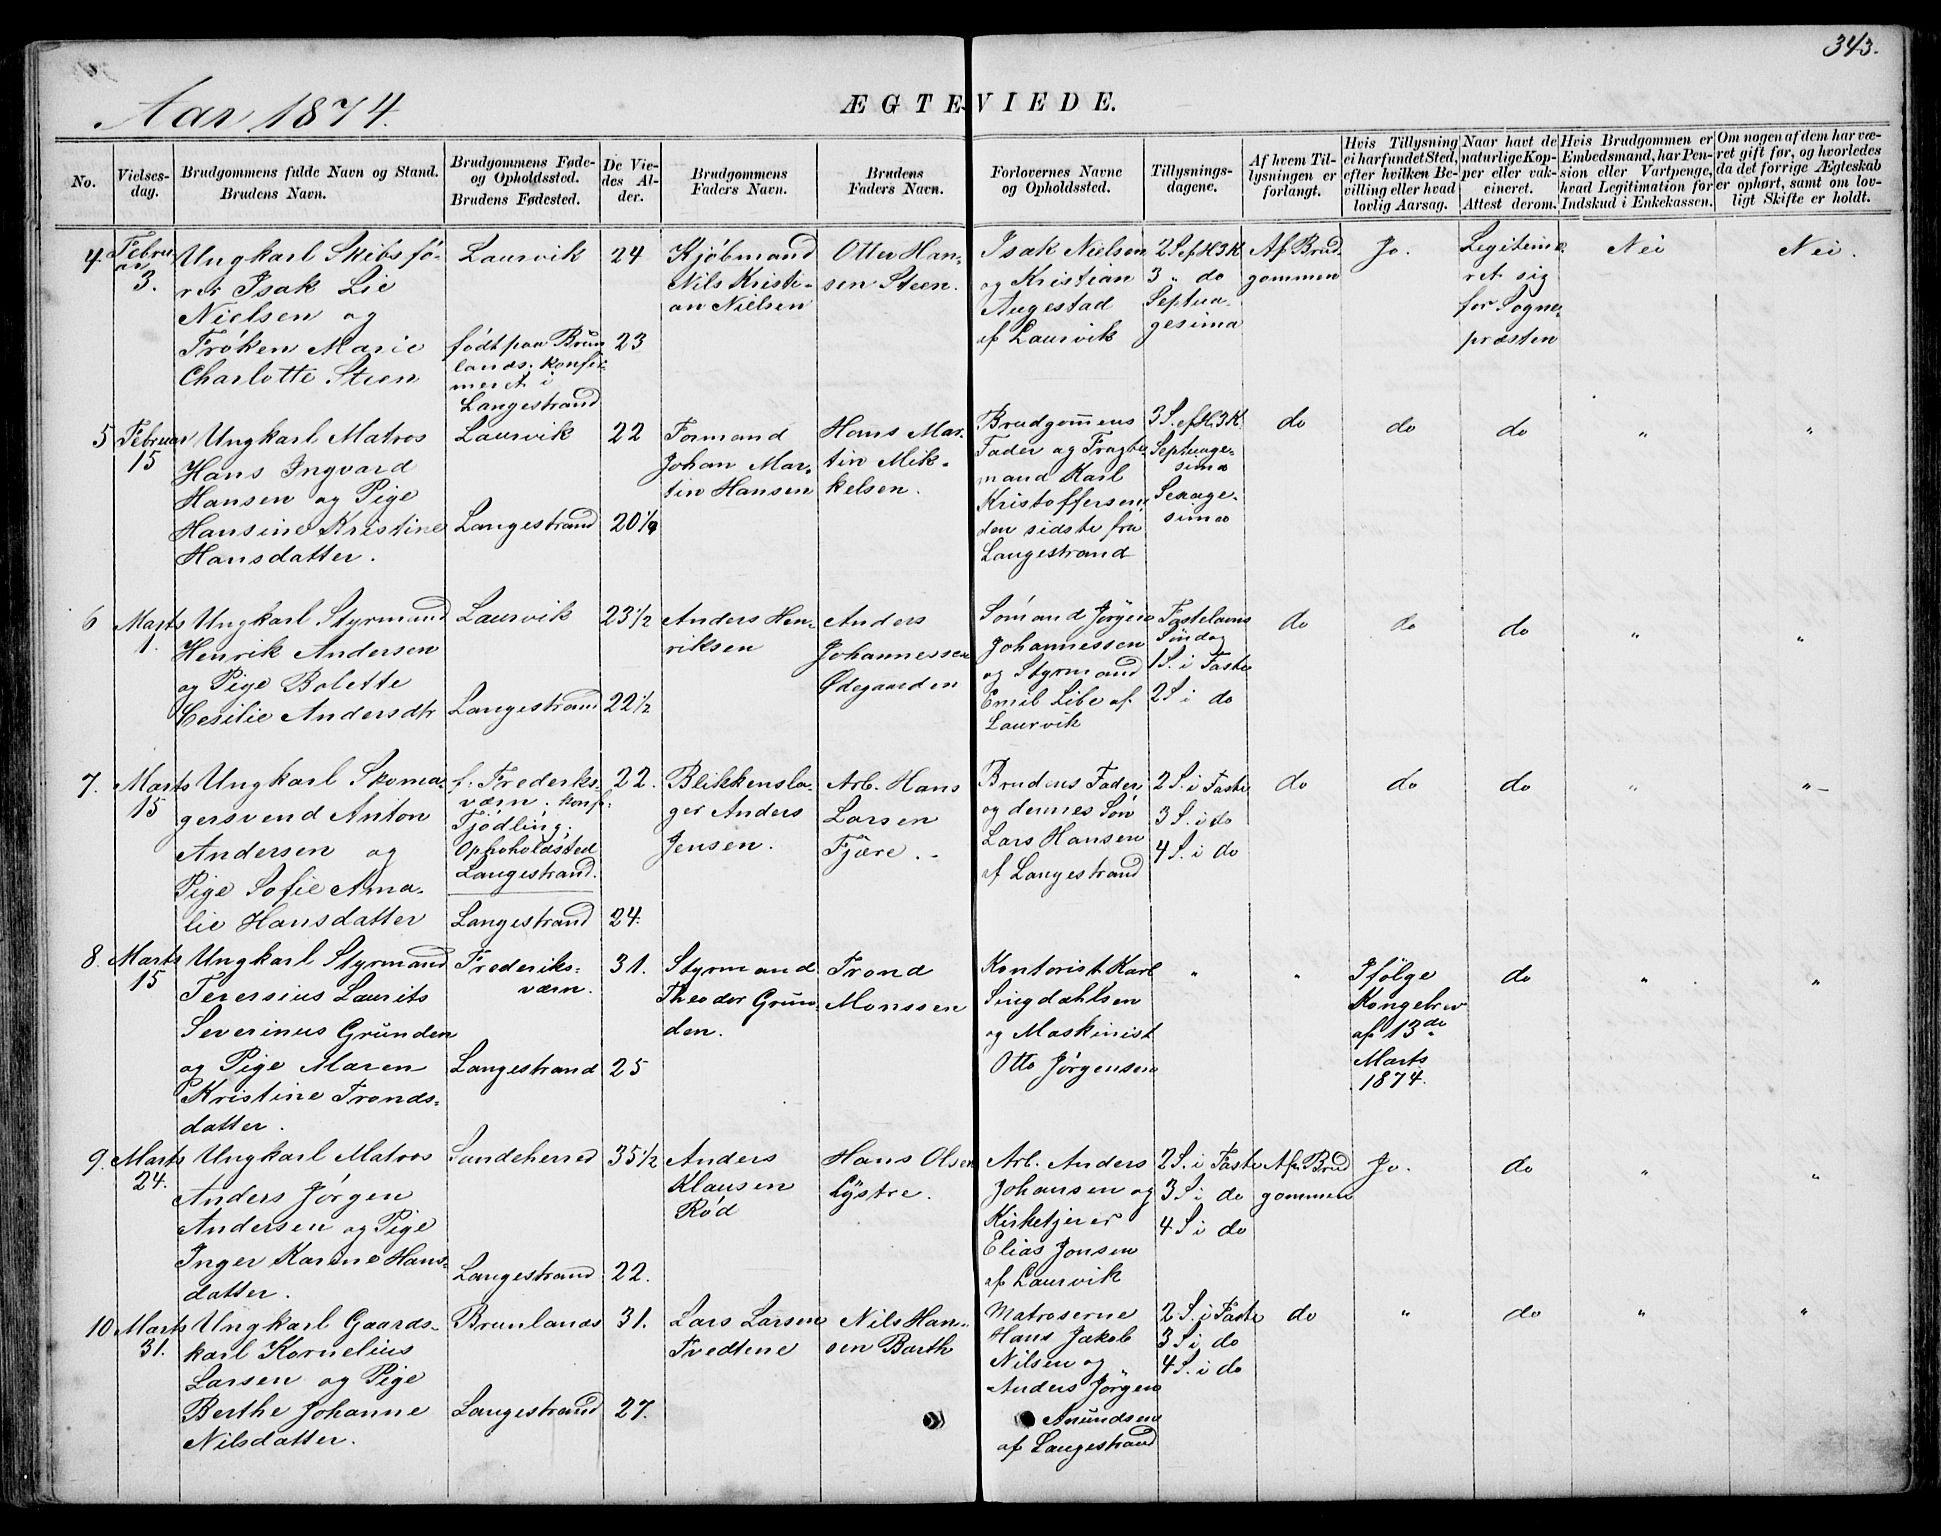 343.
Aar 1874.
ÆGTEVIEDE.
No.
Vielses-
dag.
Brudgommens fulde Navn og Stand.
Brudens Navn.
Brudgommens Føde-
og Opholdssted.
Brudens Fødested.
De Vie-
des Al-
der.
Brudgommens
Faders Navn.
Brudens
Faders Navn.
Forlovernes Navne
og Opholdssted.
Tillysnings-
dagene.
Af hvem Til-
lysningen er
forlangt.
Hvis Tillysning
ei har fundet Sted,
efter hvilken Be-
villing eller hvad
lovlig Aarsag.
Naar havt de
naturlige Kop-
per eller vak-
cineret.
Attest derom.
Hvis Brudgommen er
Embedsmand, har Pen-
sion eller Vartpenge,
hvad Legitimation for
Indskud i Enkekassen.
Om nogen af dem har væ-
ret gift før, og hvorledes
da det forrige Ægteskab
er ophørt, samt om lov-
ligt Skifte er holdt.
4.
Febru
ar
3.
Ungkarl Skibsfø-
rer Isak Lie
Nielsen og
Frøken Marie
Charlotte Steen
Laurvik
født paa Brun
lands. konfir
meret i
Langestrand
24
23
Kjøbmand
Nils Kristi-
an Nielsen
Otter Han-
sen Steen.
Isak Nielsen
og Kristian
Augestad
af Laurvik
2 S ef H 3 K
3 „ do
Septua-
gesima
Af Brud
gommen
Jo.
Legitime
ret sig
for Sogne-
præsten
Nei
Nei.
5
Februar
15
Ungkarl Matros
Hans Ingvard
Hansen og Pige
Hansine Kristine
Hansdatter.
Laurvik
Langestrand
22
20½
Formand
Johan Mar-
tin Hansen
Hans Mar-
tin Mik-
kelsen.
Brudgommens
Fader og Fragte
mand Karl
Kristoffersen
den sidste fra
Langestrand
3 S. ef H. 3 K.
Septuage-
sima
Sexage-
sima
do
do
do
„
„
6
Marts
1.
Ungkarl Styrmand
Henrik Andersen
og Pige Bolette
Cesilie Andersdtr
Laurvik
Langestrand
23½
22½
Anders Hen-
riksen
Anders
Johannessen
Ødegaarden
Sømand Jørgen
Johannessen
og Styrmand
Emil Libe af
Laurvik
Fastelavns
Søndag
1 S. i Faste
2 S. i do
do
do
do
„
„
7.
Marts
15
Ungkarl Skoma-
gersvend Anton
Andersen og
Pige Sofie Ama-
lie Hansdatter
f. Frederiks-
værn. konf.
Tjødling.
Opholdsted
Langestrand.
Langestrand
22.
24.
Blikkensla-
ger Anders
Jensen.
Arb. Hans
Larsen
Fjære.
Brudens Fader
og dennes Søn
Lars Hansen
af Langestrand
2 S. i Faste
3 S. i do
4 S. i do
do
do
do
„
„
8.
Marts
15
Ungkarl Styrmand
Teresius Laurits
Severinus Grunden
og Pige Maren
Kristine Tronds-
datter.
Frederiks-
værn.
Langestrand
31.
25
Styrmand
Theodor Grun-
den.
Trond
Monssen
Kontorist Karl
Singdahlsen
og Maskinist
Otto Jørgensen
„
„
Ifølge
Kongebrev
af 13de
Marts
1874.
do
„
„
9.
Marts
24.
Ungkarl Matros
Anders Jørgen
Andersen og Pige
Inger Karine Hans-
datter.
Sandeherred
Langestrand
35½
22.
Anders
Klausen
Rød
Hans Olsen
Lystre.
Arb. Anders
Johansen og
Kirketjener
Elias Jonsen
af Laurvik
2 S. i Faste
3 S. i do
4 S. i do
Af Brud
gommen
Jo.
do
„
„
10.
Marts
31.
Ungkarl Gaards-
karl Kornelius
Larsen og Pige
Berthe Johanne
Nilsdatter.
Brunlands
Langestrand
31.
27.
Lars Larsen
Tvedtene
Nils Han-
sen Barth
Matroserne
Hans Jakob
Nilsen og
Anders Jörgen
Amundsen
af Langestrand
2 S. i Faste
3 S. i do
4 S. i do
do
„
do
„
„